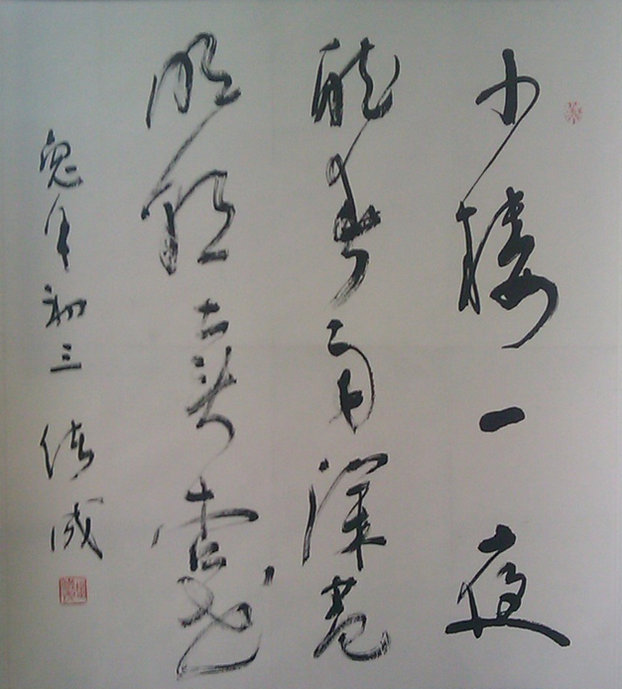 小楼一夜
聽春雨深巷
明朝卖杏花
兔年初三 成